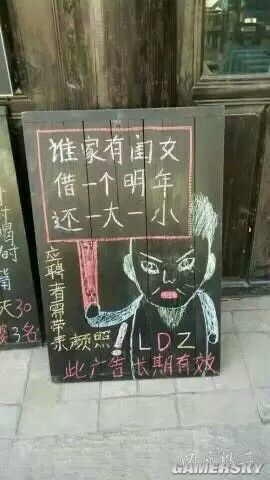 谁家有闺女
借一个明年
还一大一小
应聘者需带
来颜照!
LDZ
此广告长期有效
天30
3名
GAMERSKY